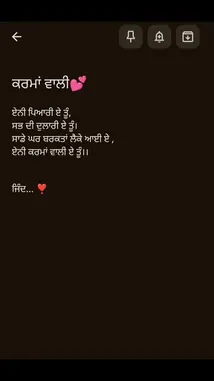 ਕਰਮਾਂ ਵਾਲੀ💕
ਏਨੀ ਪਿਆਰੀ ਏ ਤੂੰ,
ਸਭ ਦੀ ਦੁਲਾਰੀ ਏ ਤੂੰ।
ਸਾਡੇ ਘਰ ਬਰਕਤਾਂ ਲੈਕੇ ਆਈ ਏ ,
ਏਨੀ ਕਰਮਾਂ ਵਾਲੀ ਏ ਤੂੰ।।
ਜਿੰਦ... ❣️